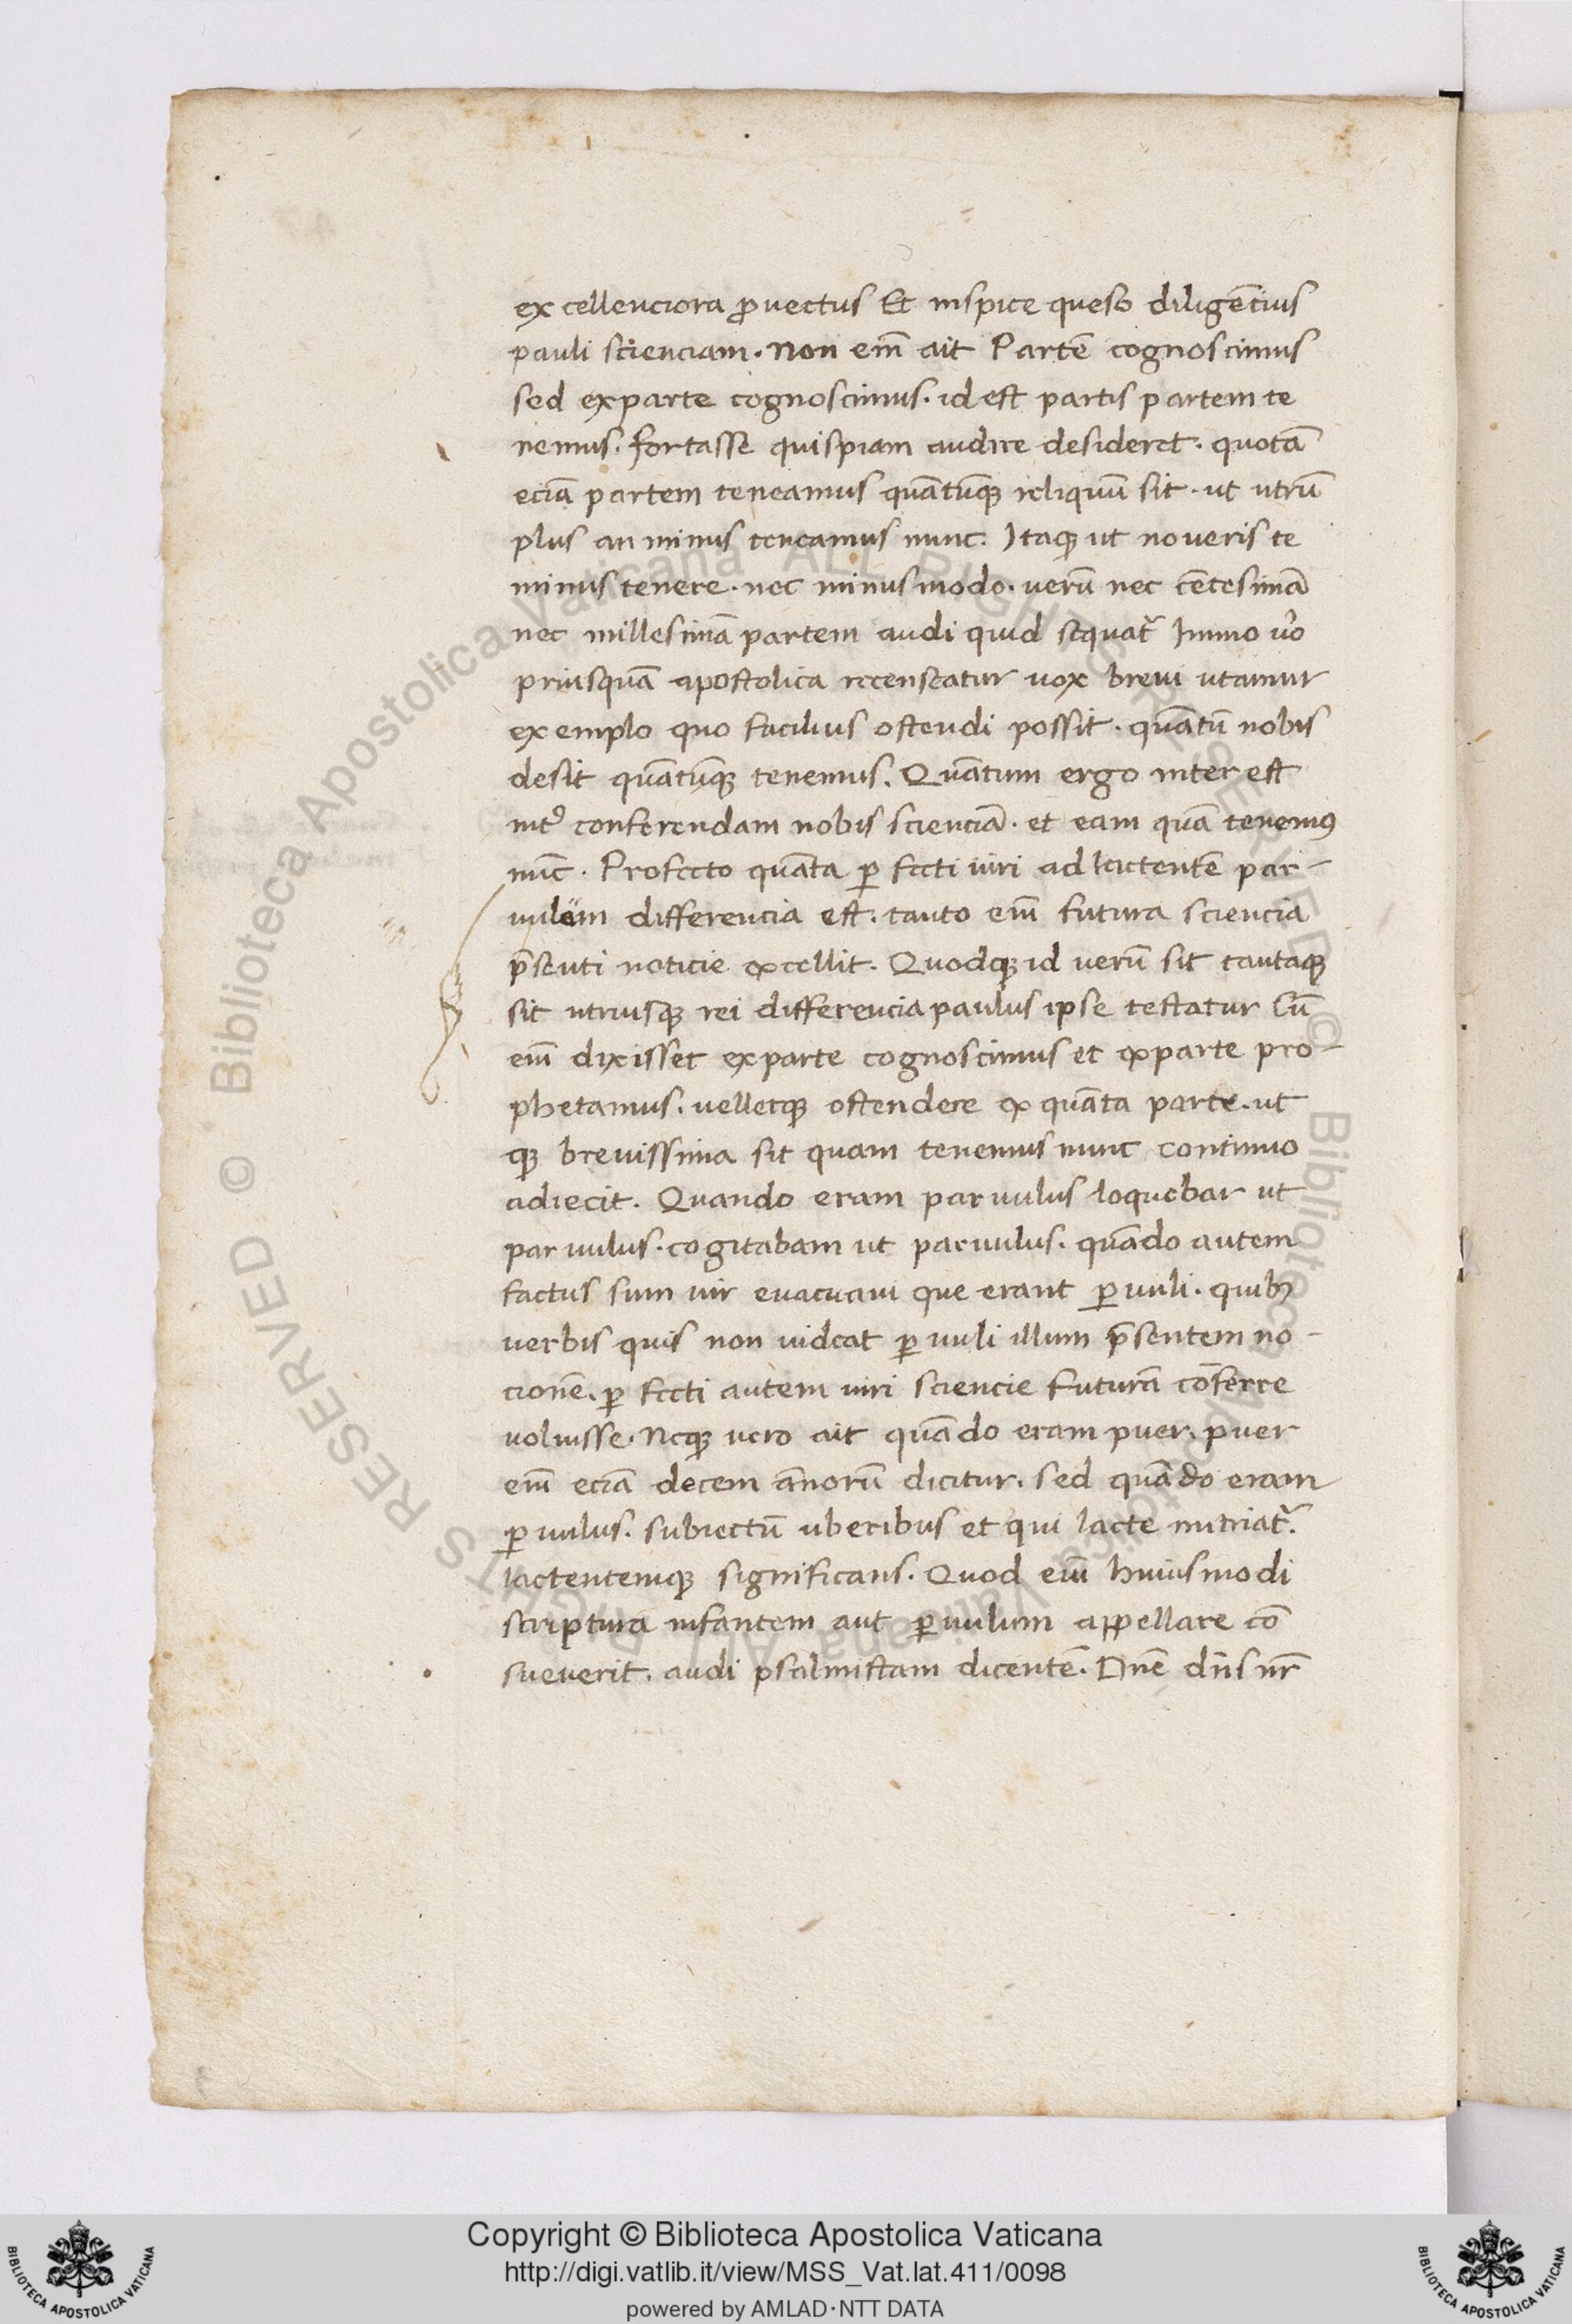 excellenciora ꝓuectus Et inspice queso diligēcius
pauli scienciam. Non em̄ ait Partē cognoscimus
sed ex parte cognoscimus. id est partis partem te
nemus. fortasse quispiam audire desideret. quotā
eciā partem teneamus quātūqꝫ reliquū sit. ut utrū
plus an minus teneamus nunc. Itaqꝫ ut noueris te
minus tenere. nec minus modo. uerū nec cētesimā
nec millesimā partem audi quid sequat᷑ Immo u͛o
priusquā apostolica recenseatur uox breui utamur
exemplo quo facilius ostendi possit. quātū nobis
desit quātūqꝫ tenemus. Quātum ergo interest
int͛ conferendam nobis scienciā. et eam quā tenemꝰ
nūc. Profecto quāta ꝑfecti uiri ad lactentē par-
uulum differencia est. tanto em̄ futura sciencia
p̄senti noticie excellit. Quodqꝫ id uerū sit tantaqꝫ
sit utriusqꝫ rei differencia paulus ipse testatur Cū
em̄ dixisset ex parte cognoscimus et ex parte pro-
phetamus. uelletqꝫ ostendere ex quāta parte. ut
qꝫ breuissima sit quam tenemus nunc continuo
adiecit. Quando eram paruulus loquebar ut
paruulus. cogitabam ut paruulus. quādo autem
factus sum uir euacuaui que erant ꝑuuli. quibꝫ
uerbis quis non uideat ꝑuuli illum p̄sentem no-
cionē. ꝑfecti autem uiri sciencie futurā cōferre
uoluisse. Neqꝫ uero ait quādo eram puer. puer
em̄ eciā decem ānorū dicitur. sed quādo eram
ꝑuulus. subiectū uberibus et qui lacte nutriat᷑.
lactentemqꝫ significans. Quod em̄ huiusmodi
scriptura infantem aut ꝑuulum appellare cō
sueuerit. audi psalmistam dicentē. Dn̄e dn̄s nr̄
Copyright © Biblioteca Apostolica Vaticana
http://digi.vatlib.it/view/MSS_Vat.lat.411/0098
powered by AMLAD·NTT DATA
BIBLIOTECA APOSTOLICA VATICANA
BIBLIOTECA APOSTOLICA VATICANA
© Biblioteca Apostolica Vaticana ALL RIGHTS RESERVED
© Biblioteca Apostolica Vaticana ALL RIGHTS RESERVED